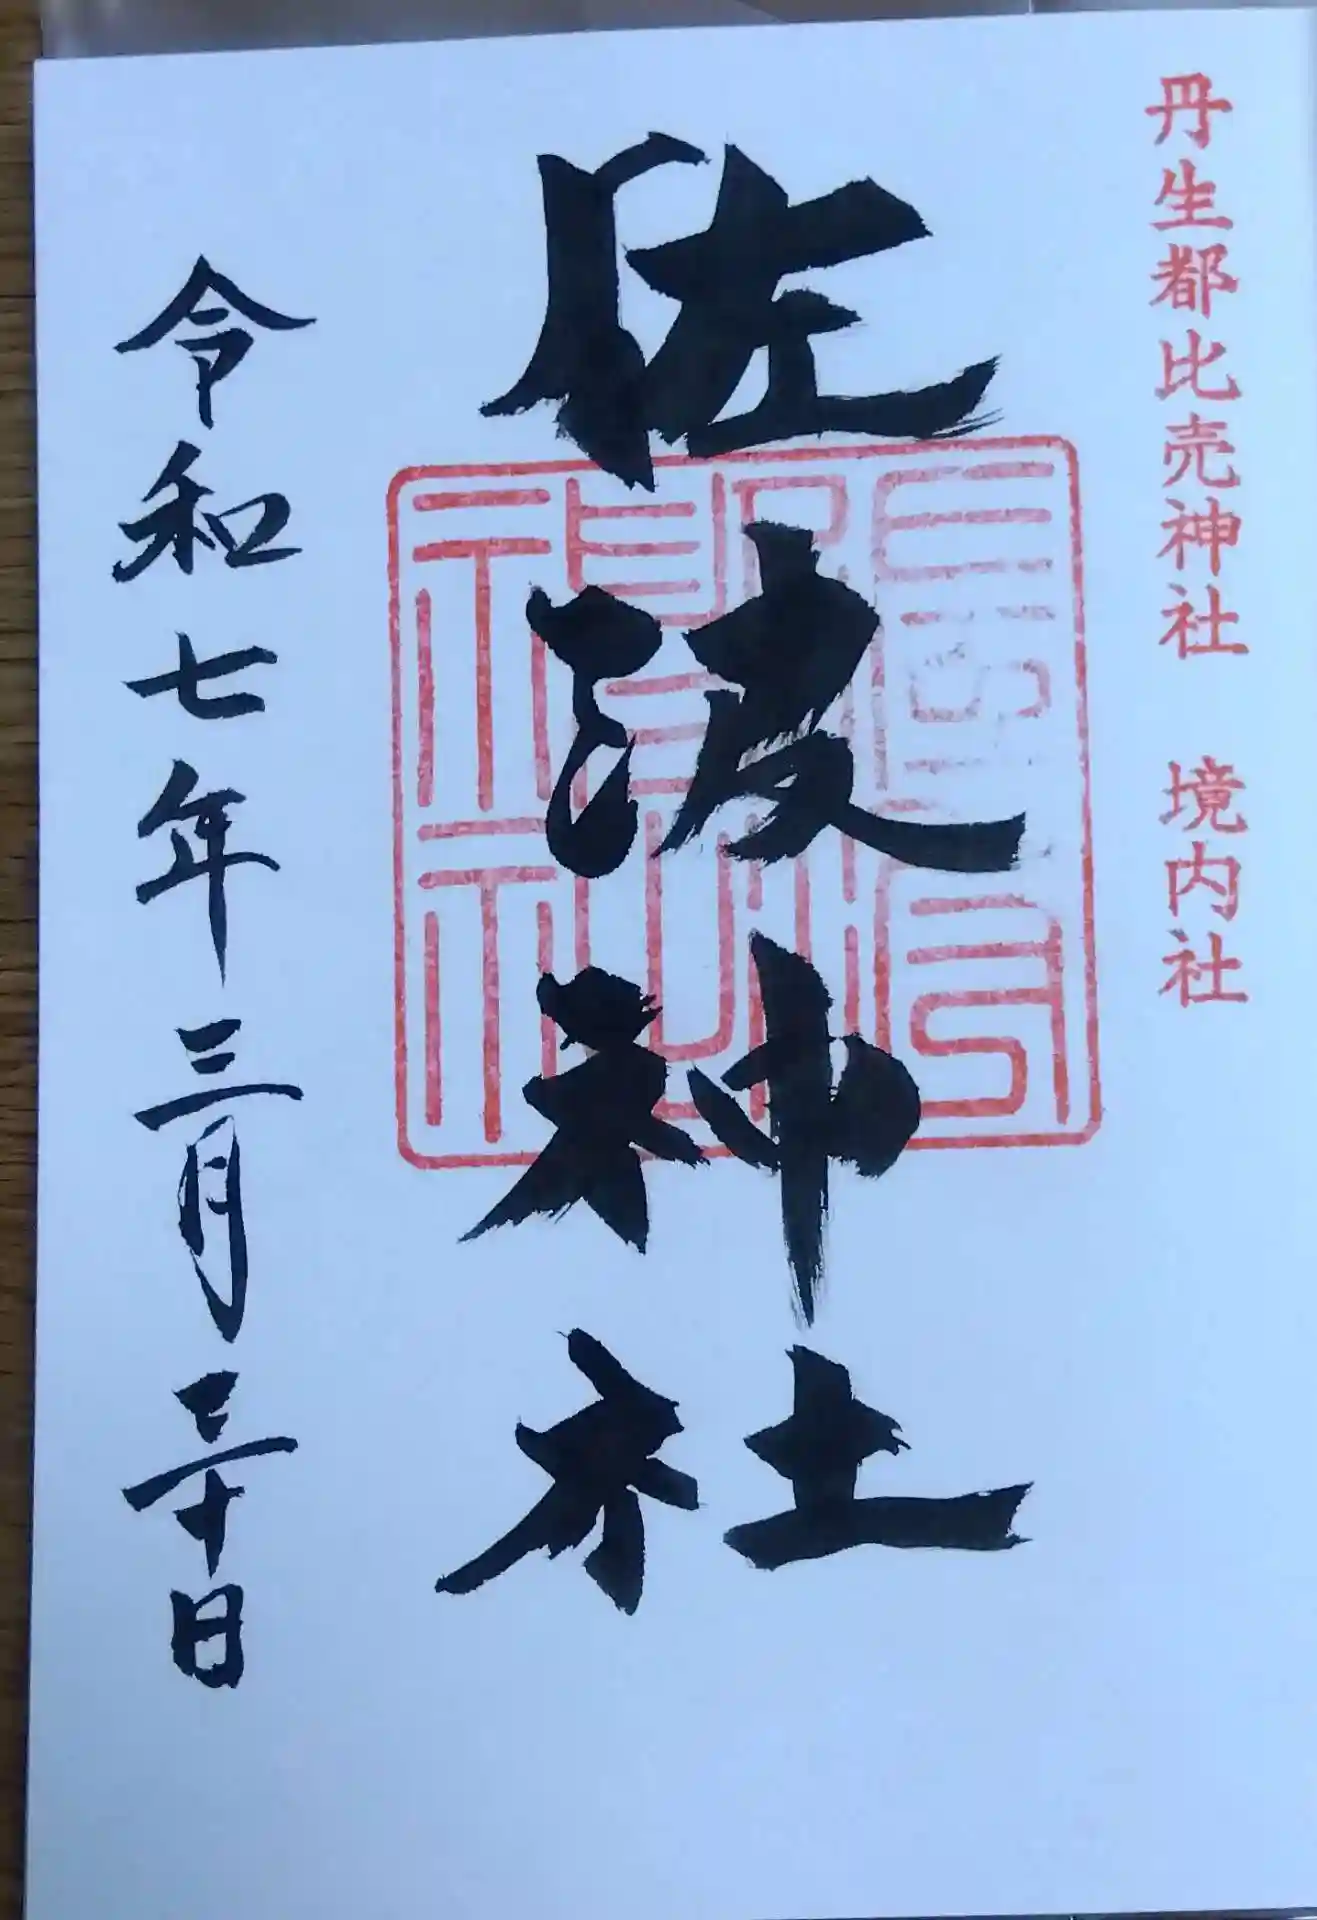 丹生都比売神社 境内社
佐波神社
令和七年三月三十日